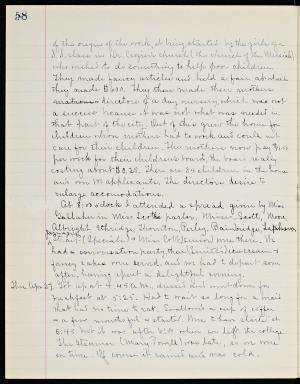 58
of the origin of the work, it being started by the girls of a
S.S. class in Dr. church (the church of the Messiah)
who wished to do something to help poor children.
They made fancy articles and held a fair at which
they made $600. They then made their mothers
directors of a day nursery which was not
a success because it was not what was needed in
that part of the city. Out of this grew the home for
children whose mothers had to work and could not
care for their children. The mothers now pay
per week for their children's board, the board really
costing about $2.25. There are 34 children in the home
and over 100 applicants. The directors desire to
enlarge accommodations.
At 8:00 o'clock I attended a spread given by Miss
Gallaher in Miss Scott's parlor. Misses Scott, More
Albright, Ethridge, Thornton, Perley, Bainbridge,
(Specials) & Miss Cott(senior) were there. We
had a conversation party, then (fruit) ice cream &
fancy cakes were served, and we had to depart soon
after, having spent a delightful evening.
Thu. Apr. 27. Got up at 4:45 A.M., dressed and went down for
breakfast at 5:25. Had to wait so long for a maid
that had no time to eat. Swallowed a cup of coffee
& a few mouthfuls & started. Were to have started at
5:45 but it was after 6:00 when we left the college
The steamer (Mary Powell) was late, so we were
on time. Of course it rained and was cold.